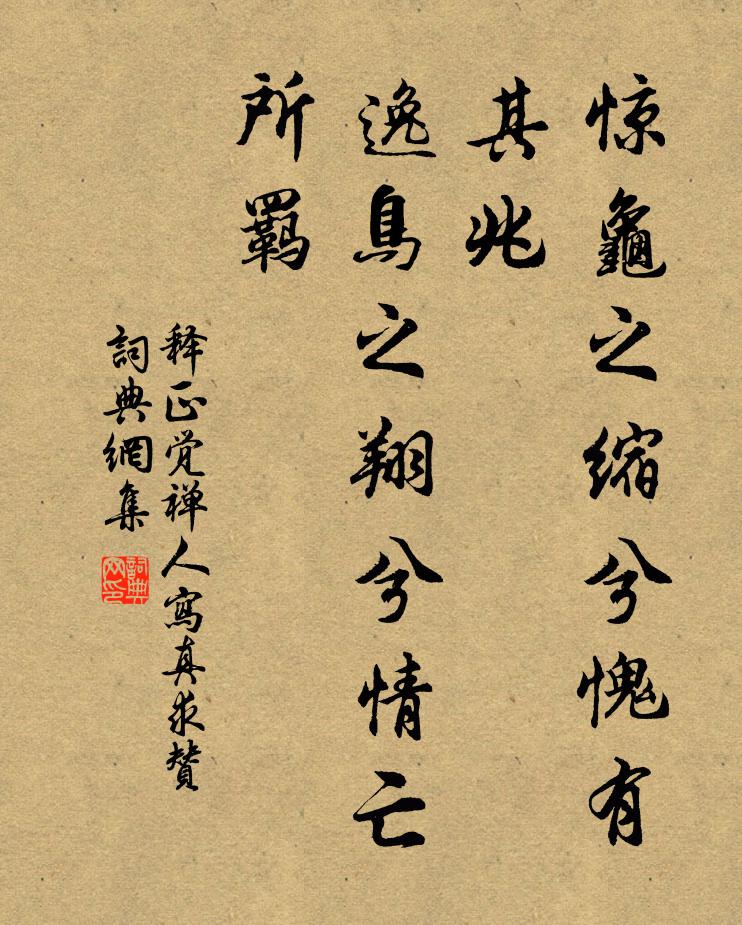 惊龜之缩兮愧有
其兆
逸鳥之翔兮情亡
所羁
释正觉禅人寫真求赞
詞典網集
詞典網印